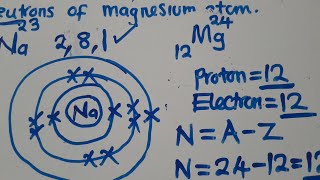 eutrons of magnesium atom.
23
Na 2,8,1
24
Mg
12
Na
Proton=12
Electron=12
N=A-Z
N=24-12=12